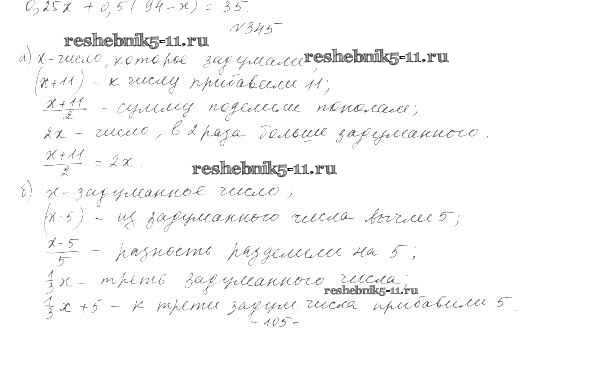 0,25x + 0,5(94-x) = 35.
№345
reshebnik5-11.ru
а) x-число, которое задумали;
reshebnik5-11.ru
(x+11) - к числу прибавили 11;
x+11/2 - сумму поделили пополам;
2x - число, в 2 раза больше задуманного.
x+11/2 = 2x.
reshebnik5-11.ru
б) x-задуманное число,
(x-5) - из задуманного числа вычли 5;
x-5/5 - разность разделили на 5;
1/3x - треть задуманного числа;
reshebnik5-11.ru
1/3x + 5 - к трети задум числа прибавили 5.
-105-